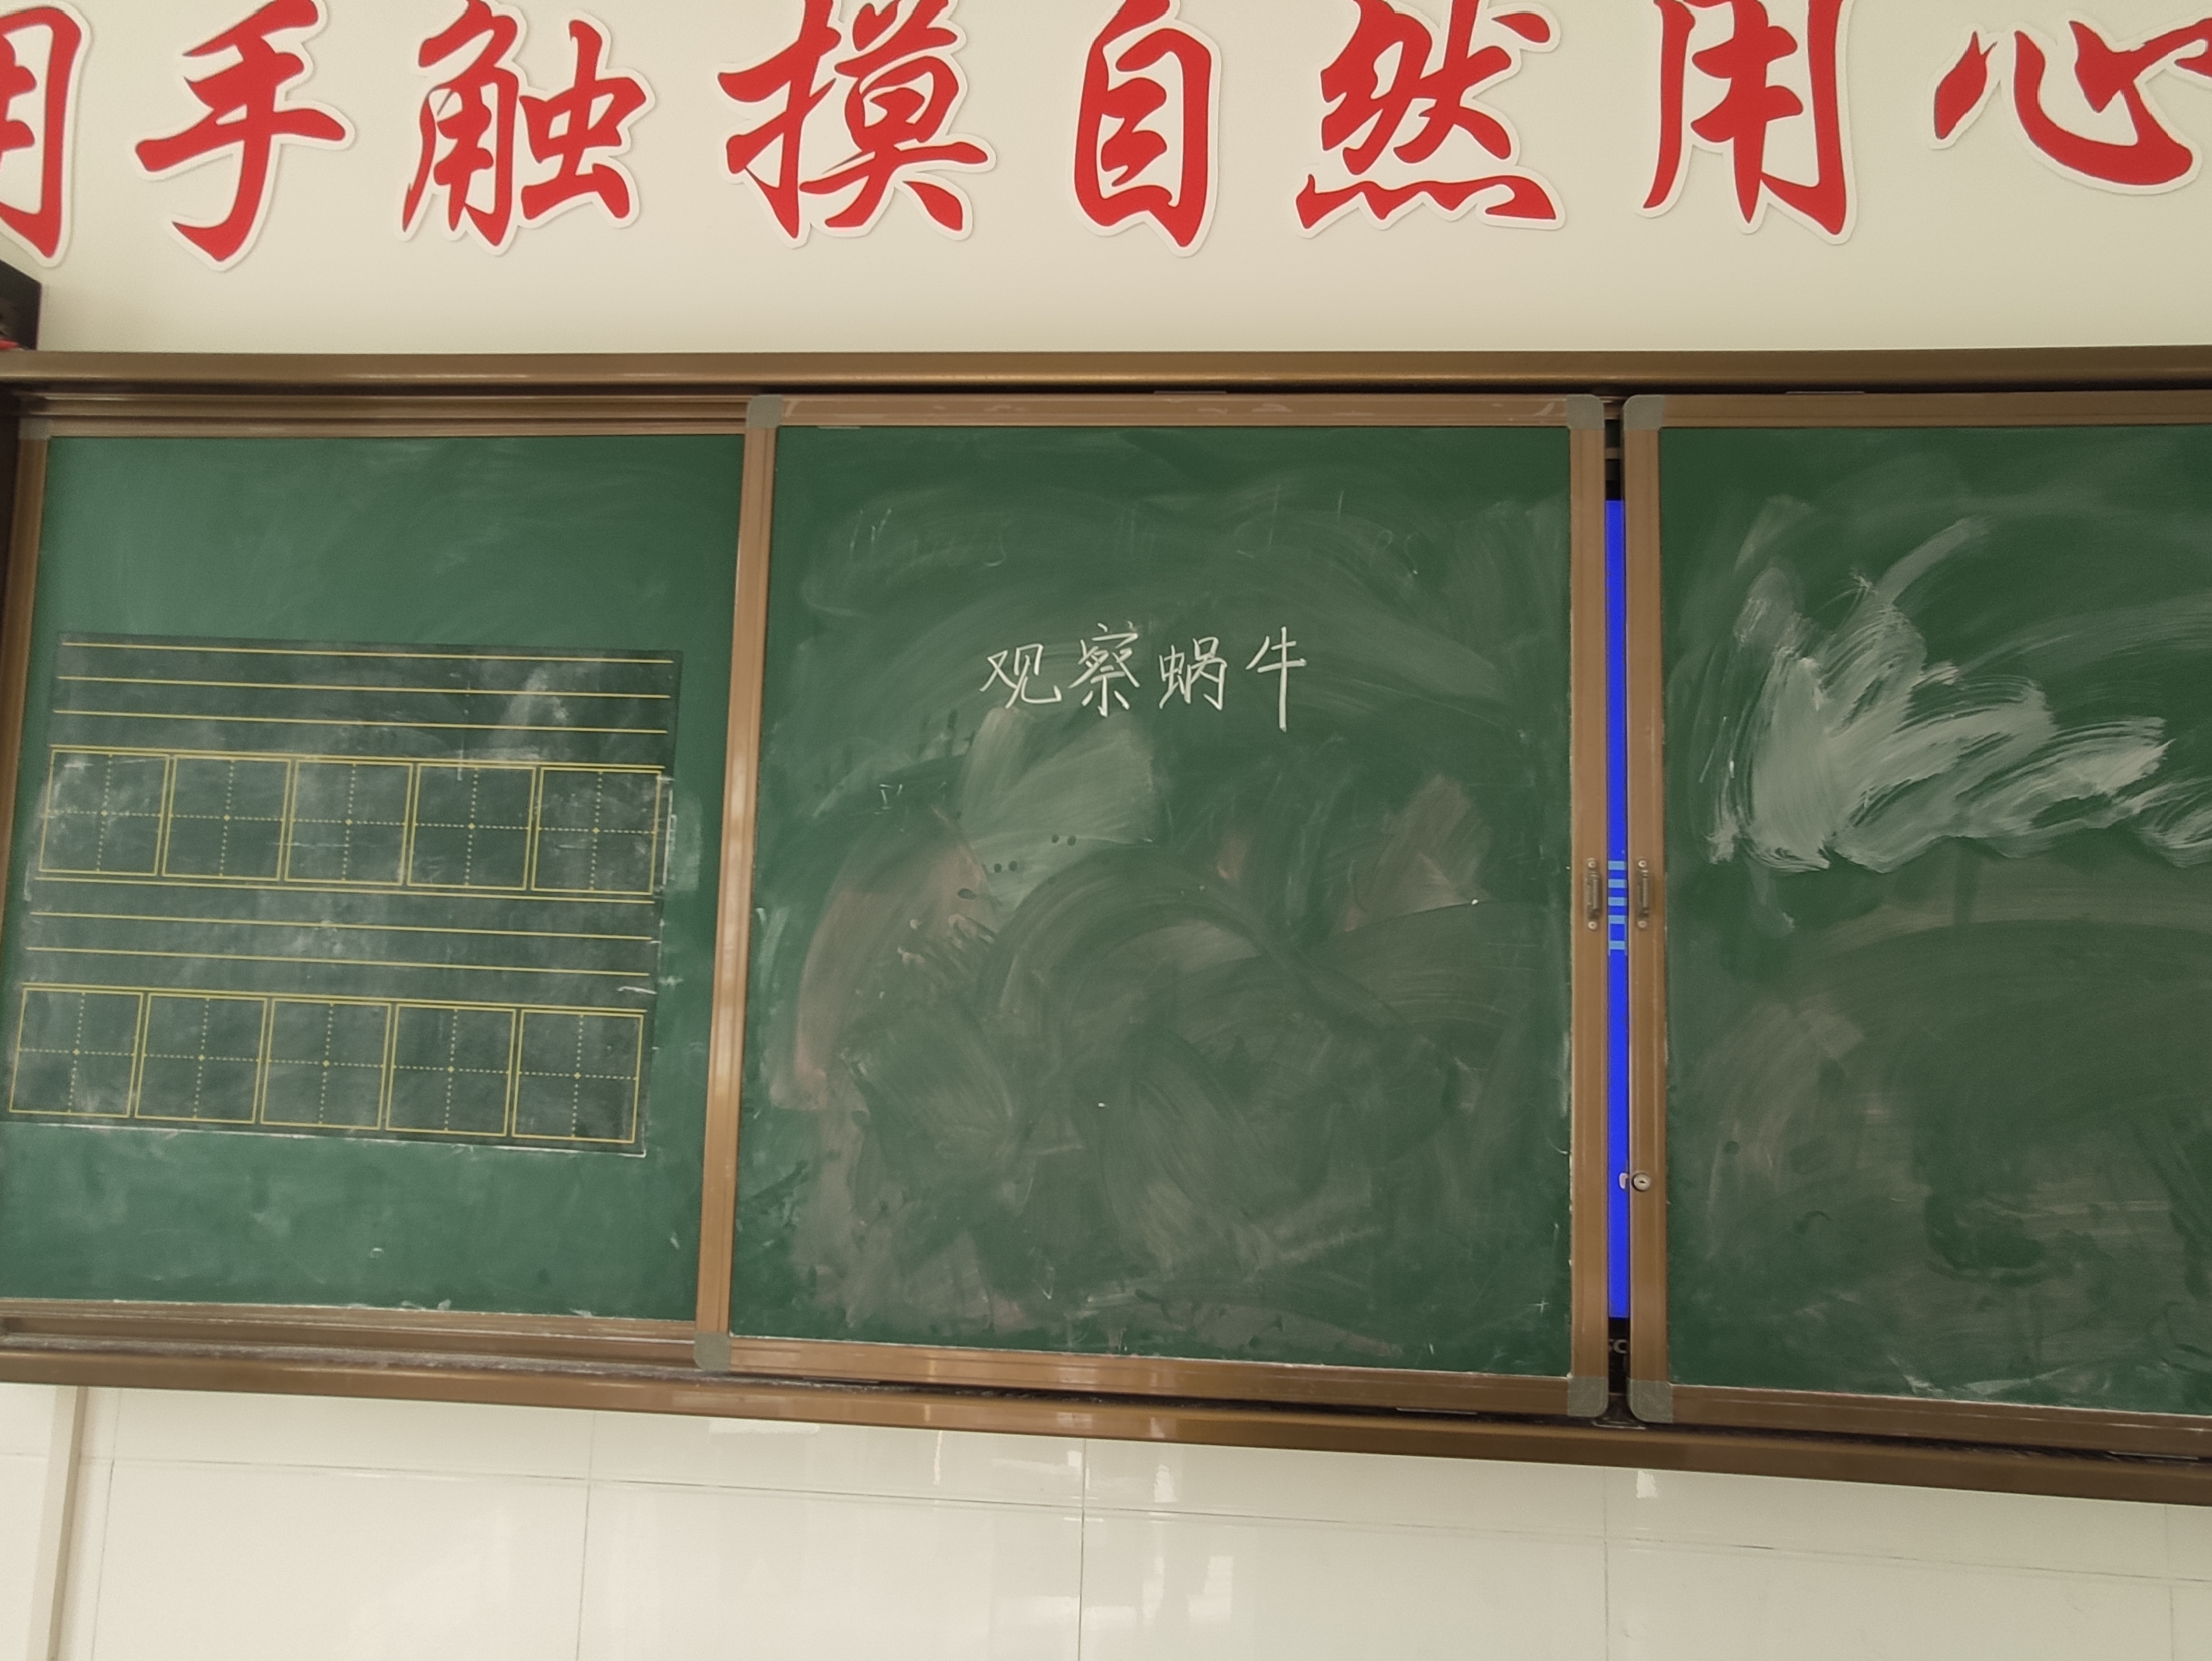 用手触摸自然用心
观察蜗牛